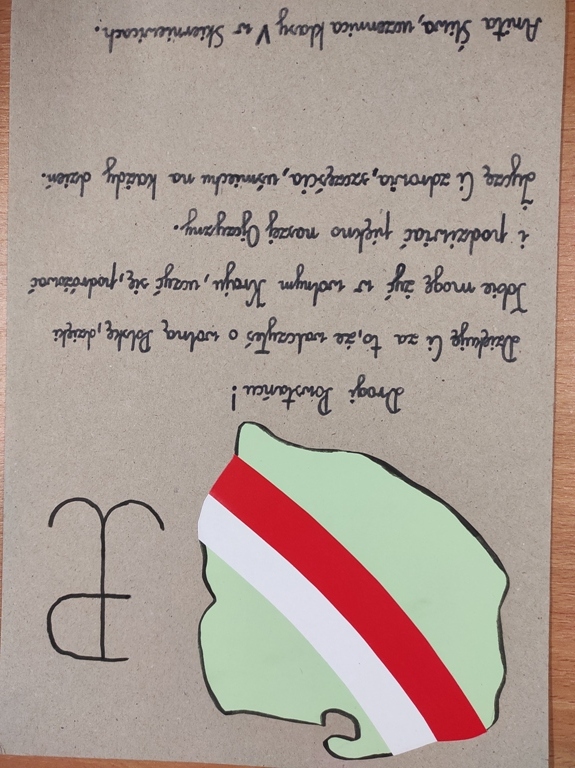 Drogi Powstańcu!
Dziękuję Ci za to, że walczyłeś o wolną Polskę, dzięki
Tobie mogę żyć w wolnym Kraju, uczyć się, podróżować
i podziwiać piękno naszej Ojczyzny.
Życzę Ci zdrowia, szczęścia, uśmiechu na każdy dzień.
Anita Śliwa, uczennica klasy V w Skierniewicach.